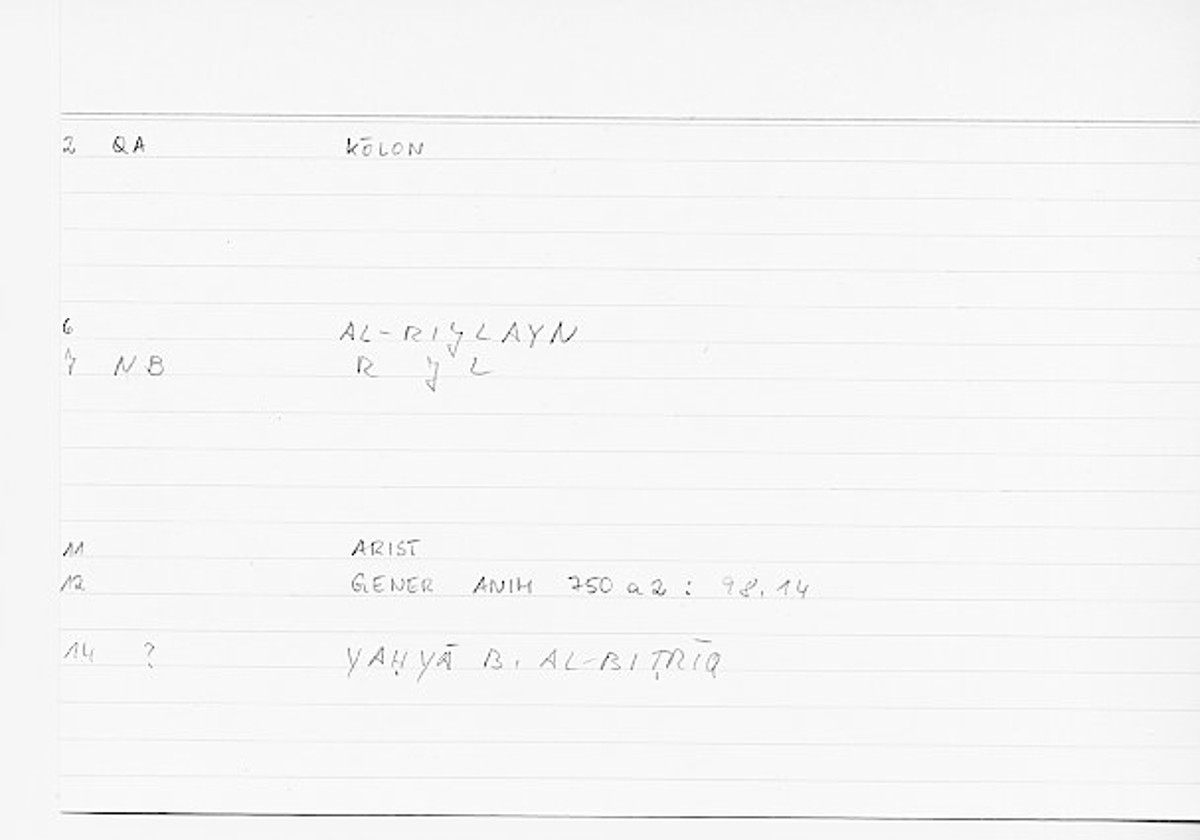 2 QA KŌLON
6 AL-RIJLAYN
7 NB R J L
11 ARIST
12 GENER ANIM 750 a 2 : 98.14
14 ? YAḤYĀ B. AL-BIṬRĪQ